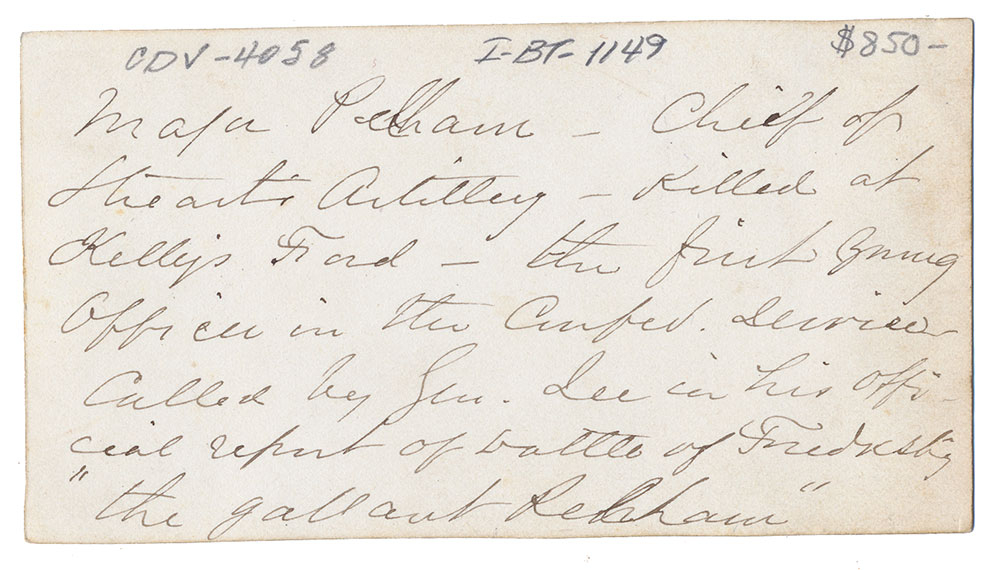 CDV-4058 I-BT-1149 $850-
Major Pelham - Chief of
Stuart's Artillery - Killed at
Kelly's Ford - the first young
Officer in the Confed. Service
Called by Gen. Lee in his offi-
cial report of battle of Fredksbg
"the gallant Pelham"